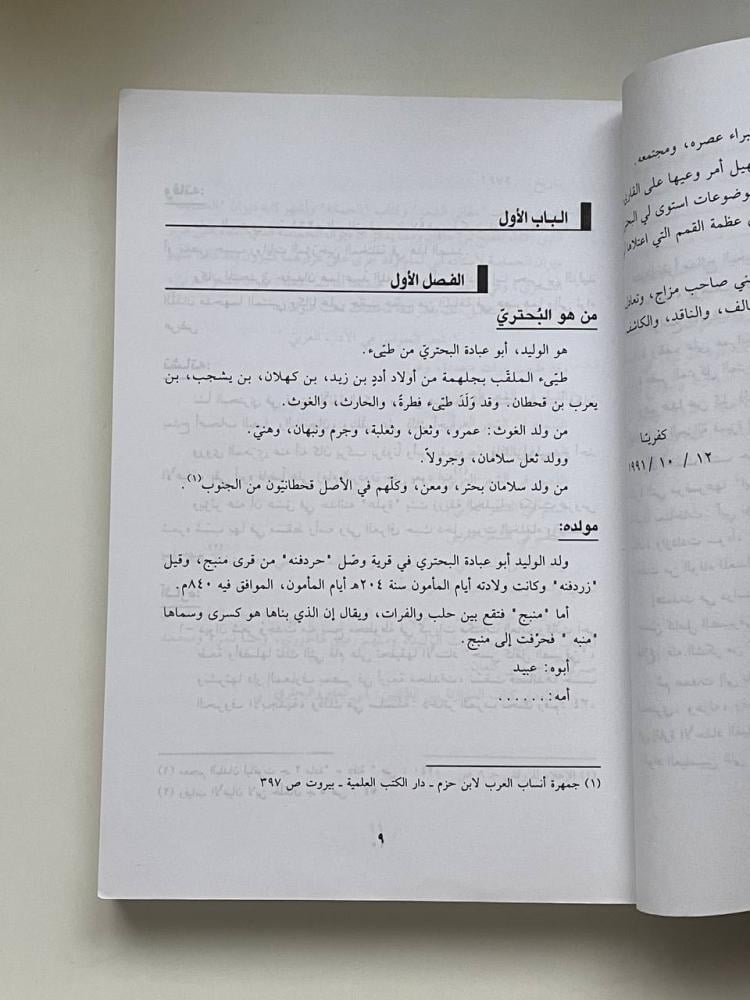 الباب الأول
الفصل الأول
من هو البُحتريّ
هو الوليد، أبو عبادة البحتريّ من طيّىء.
طيّىء الملقّب بجلهمة من أولاد أددٍ بن زيد، بن كهلان، بن يشجب، بن
يعرب بن قحطان. وقد وَلَدَ طيّىء فطرةً، والحارث، والغوث.
من ولد الغوث: عمرو، وثعل، وثعلبة، وجرم ونبهان، وهنيّ.
وولد ثعل سلامان، وجرولاً.
من ولد سلامان بحتر، ومعن، وكلّهم في الأصل قحطانيّون من الجنوب(١).
مولده:
ولد الوليد أبو عبادة البحتري في قرية وصْل "حردفنه" من قرى منبج، وقيل
"زردفنه" وكانت ولادته أيام المأمون سنة ٢٠٤هـ أيام المأمون، الموافق فيه ٨٤٠م.
أما "منبج" فتقع بين حلب والفرات، ويقال إن الذي بناها هو كسرى وسماها
"منبه" فحرّفت إلى منبج.
أبوه: عبيد
أمه: . . . . . .
(١) جمهرة أنساب العرب لابن حزم ـ دار الكتب العلمية ـ بيروت ص ٣٩٧
٩
عصره، ومجتمعه.
أمر وعيها على
استوى لي
عظمة القمم التي
صاحب مزاج،
والناقد،
كفريّا
١٢ / ١٠ / ١٩٩١